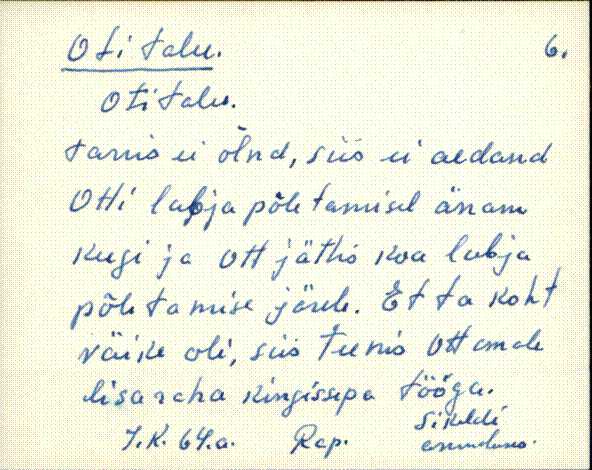 Oti talu. 6.
Oti talu.
tarvis ei õlnd, siis ei aedand
Otti lubja põletamisel änam
kegi ja Ott jättis koa lubja
põletamise järele. Et ta koht
väike oli, siis teenis Ott omale
lisaraha kingissepa tööga.
J.K. 64.a. Rap. Sikeldi
asunduses.